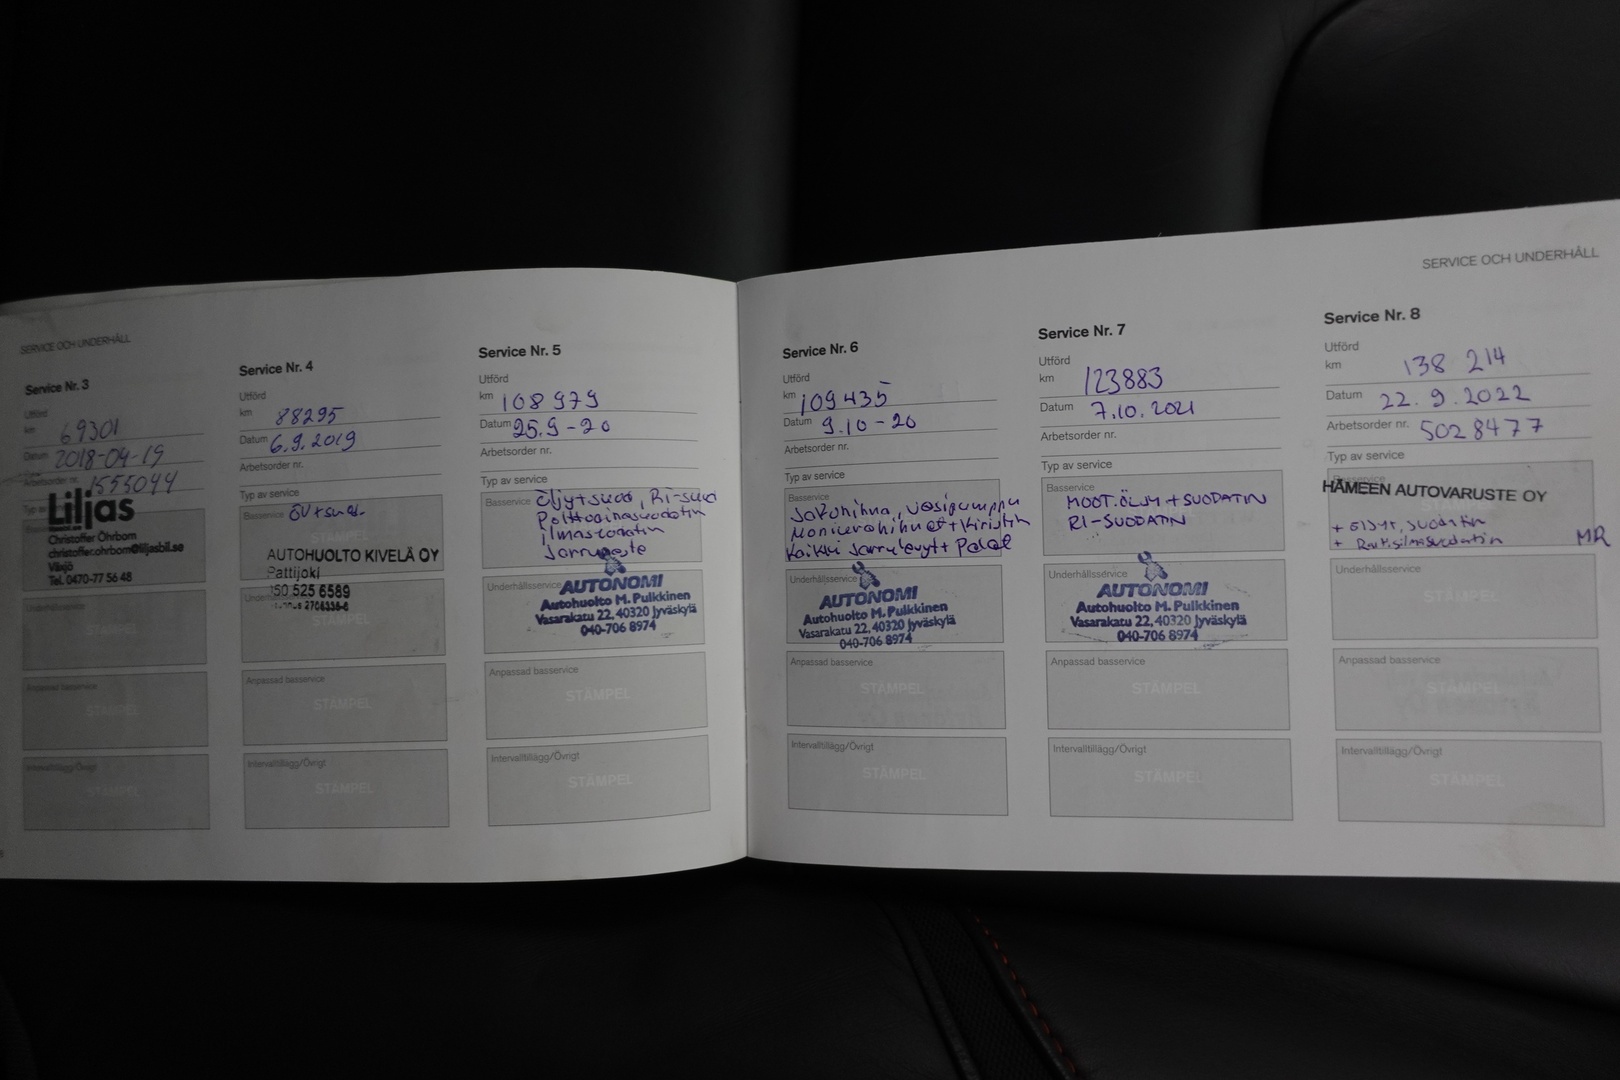 SERVICE OCH UNDERHÅLL
Service Nr. 3
Utförd
km 69301
Datum 2018-04-19
Arbetsorder nr. 1555044
Typ av
Liljas
Christoffer Öhrborn
christoffer.ohrborn@liljasbil.se
Växjö
Tel. 0470-77 56 48
Underhållsservice
STÄMPEL
Anpassad basservice
STÄMPEL
Intervalltillägg/Övrigt
STÄMPEL
Service Nr. 4
Utförd
km 88295
Datum 6.9.2019
Arbetsorder nr.
Typ av service
Basservice ÖV+suod.
STÄMPEL
AUTOHUOLTO KIVELÄ OY
Pattijoki
050 525 6589
STÄMPEL
Anpassad basservice
STÄMPEL
Intervalltillägg/Övrigt
STÄMPEL
Service Nr. 5
Utförd
km 108 979
Datum 25.9-20
Arbetsorder nr.
Typ av service
Basservice Öljy+suod, Ri-suod
Polttoainesuodatin
ilmasuodatin
Jarruneste
Underhållsservice
AUTONOMI
Autohuolto M. Pulkkinen
Vasarakatu 22, 40320 Jyväskylä
040-706 8974
Anpassad basservice
STÄMPEL
Intervalltillägg/Övrigt
STÄMPEL
SERVICE OCH UNDERHÅLL
Service Nr. 6
Utförd
km 109435
Datum 9.10-20
Arbetsorder nr.
Typ av service
Basservice
Jakohihna, vesipumppu
Moniurahihnat+kiristin
Kaikki Jarrulevyt+Palat
Underhållsservice
AUTONOMI
Autohuolto M. Pulkkinen
Vasarakatu 22, 40320 Jyväskylä
040-706 8974
Anpassad basservice
STÄMPEL
Intervalltillägg/Övrigt
STÄMPEL
Service Nr. 7
Utförd
km 123883
Datum 7.10.2021
Arbetsorder nr.
Typ av service
Basservice
MOOT.ÖLJY+SUODATIN
RI-SUODATIN
Underhållsservice
AUTONOMI
Autohuolto M. Pulkkinen
Vasarakatu 22, 40320 Jyväskylä
040-706 8974
Anpassad basservice
STÄMPEL
Intervalltillägg/Övrigt
STÄMPEL
Service Nr. 8
Utförd
km 138 214
Datum 22.9.2022
Arbetsorder nr. 5028477
Typ av service
Basservice
HÄMEEN AUTOVARUSTE OY
+ Öljyt, suodatin
+ Raitisilmasuodatin MR
Underhållsservice
STÄMPEL
Anpassad basservice
STÄMPEL
Intervalltillägg/Övrigt
STÄMPEL